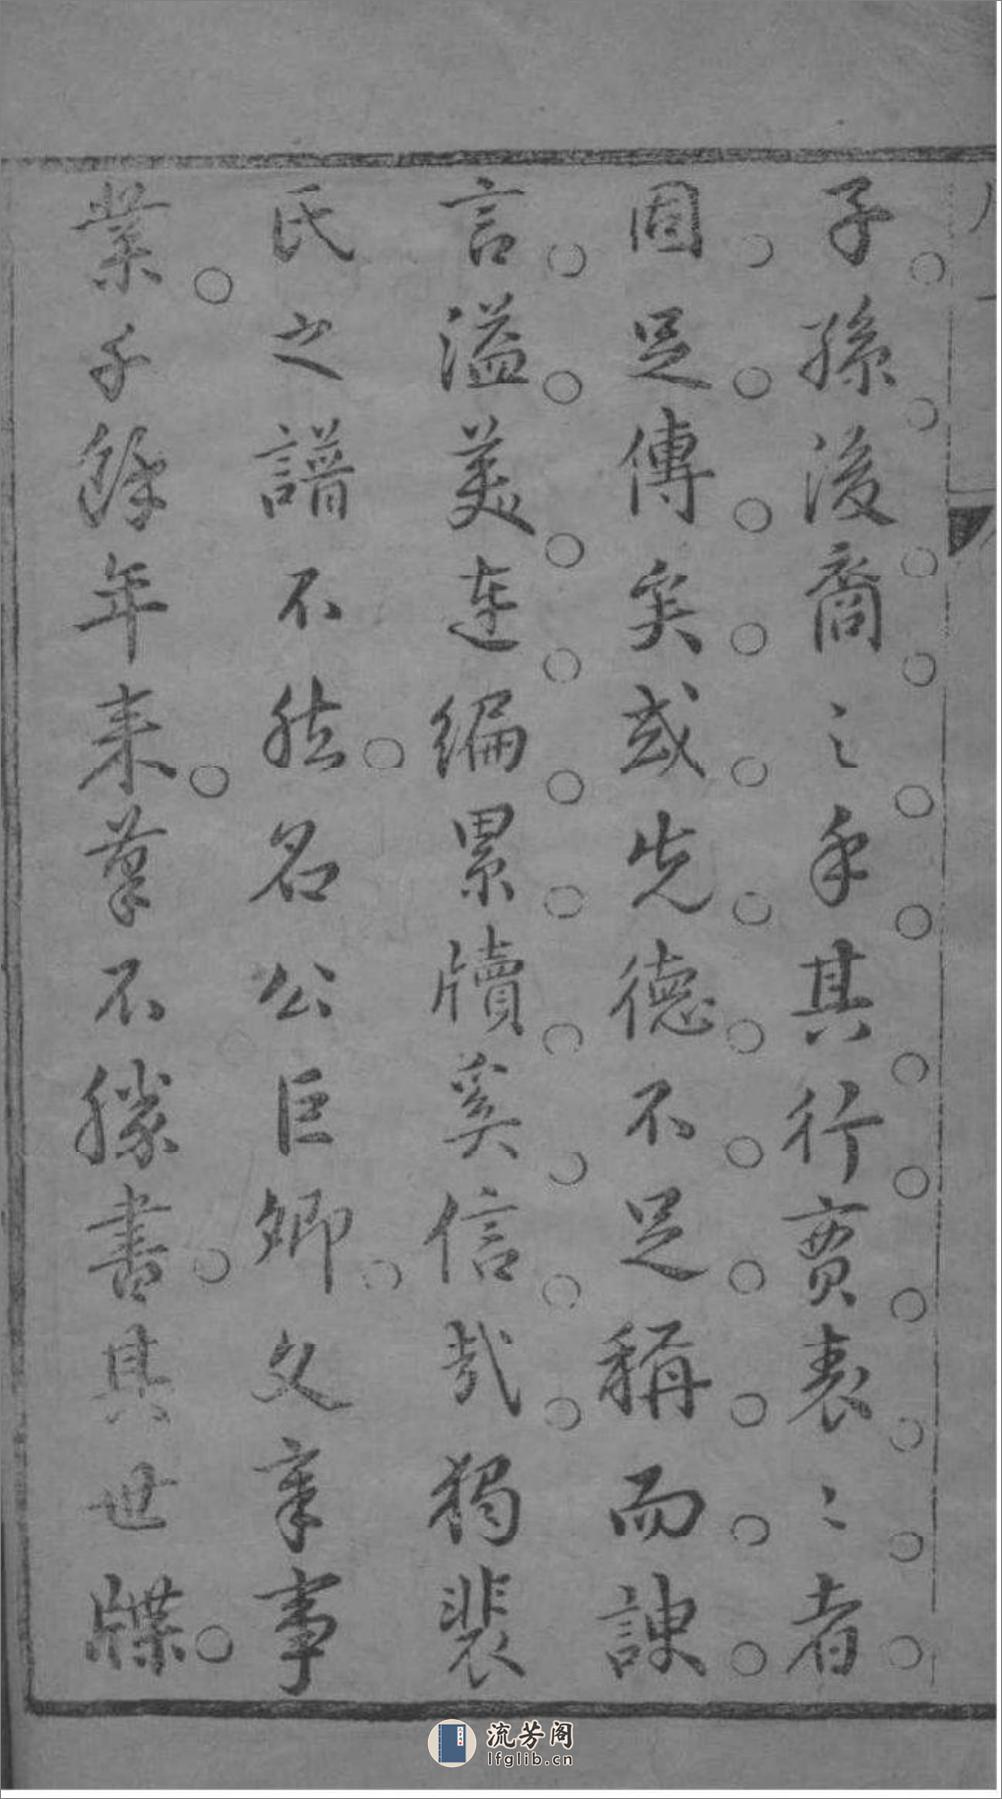 子孫後裔之手其行實表表者
固足傳矣或先德不足稱而諛
言溢美連編累牘奚信哉獨裴
氏之譜不然名公巨卿文章事
業千餘年来筆不勝書其世牒
流芳阁
lfglib.cn